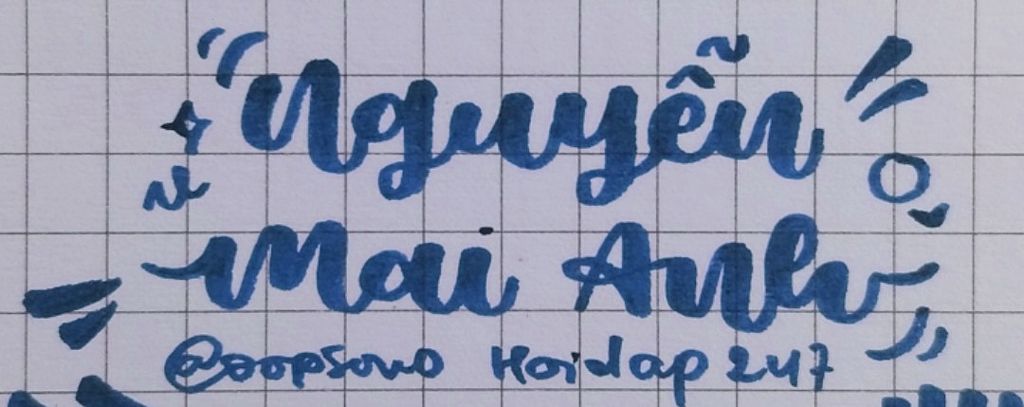 Nguyễn
Mai Anh
Hoidap 247